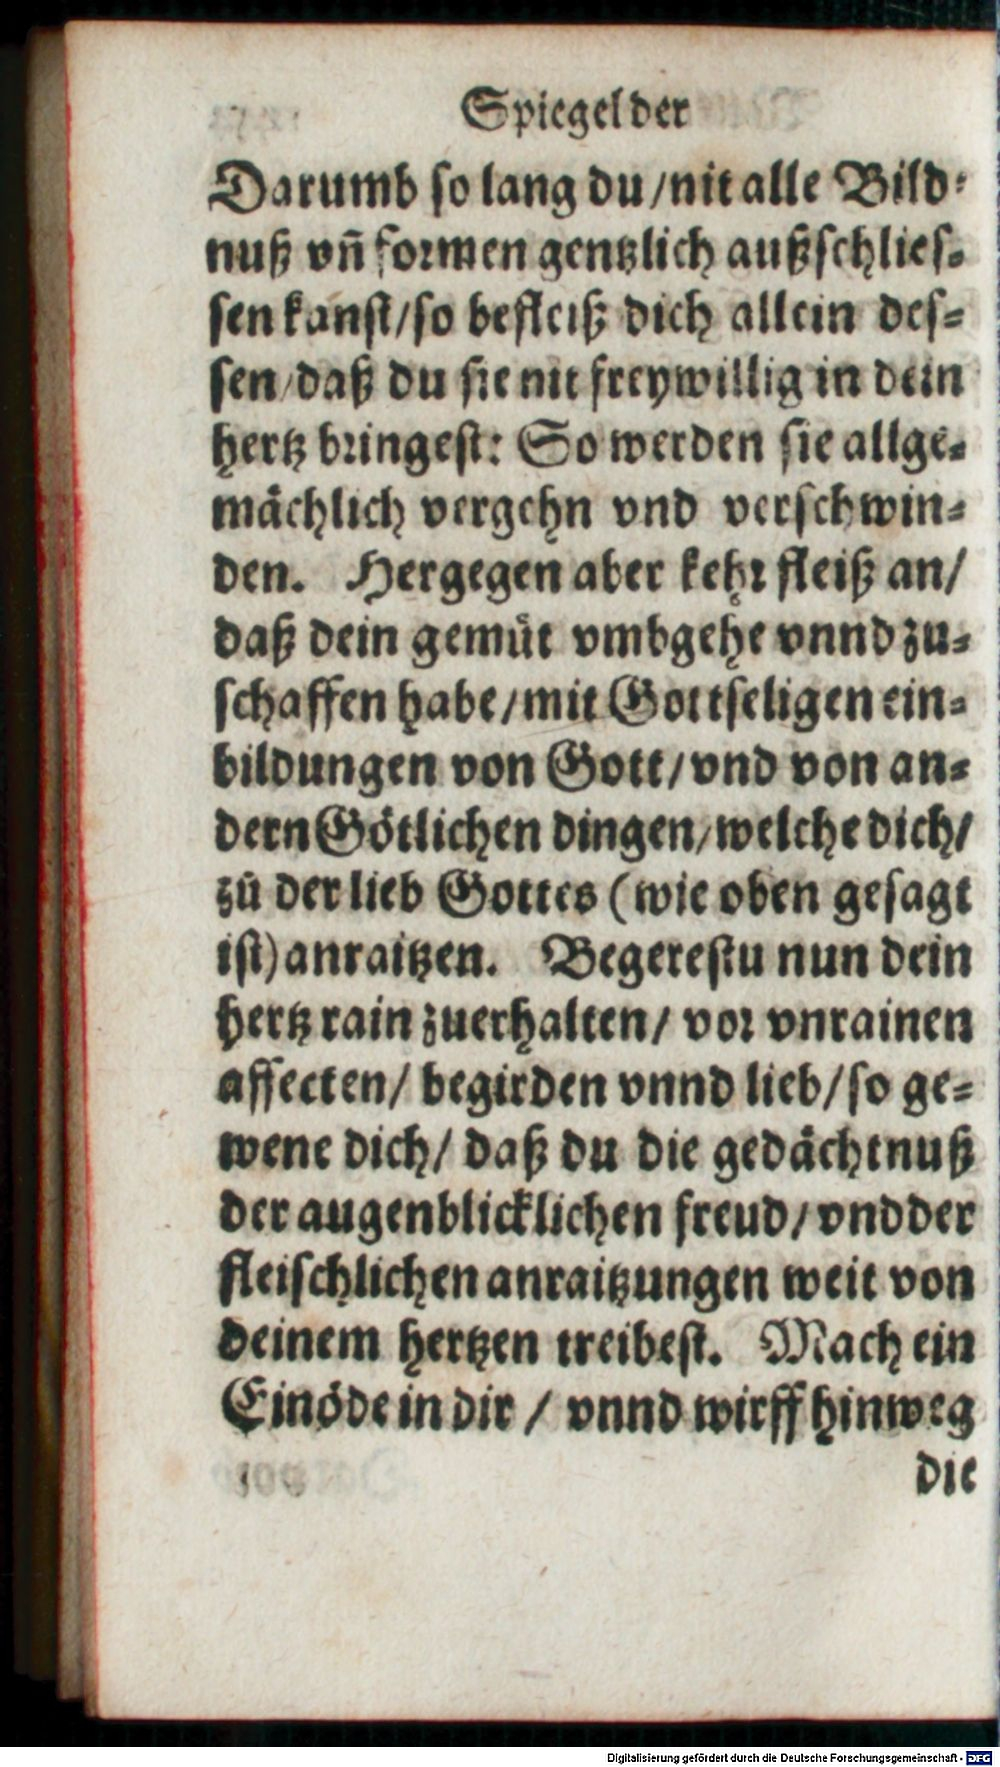 Spiegel der
Darumb so lang du/nit alle Bild⸗
nuß vñ formen gentzlich außschlies⸗
sen kanst/so befleiß dich allein des⸗
sen/daß du sie nit freywillig in dein
hertz bringest: So werden sie allge⸗
mächlich vergehn vnd verschwin⸗
den. Hergegen aber kehr fleiß an/
daß dein gemüt vmbgehe vnnd zu⸗
schaffen habe/mit Gottseligen ein⸗
bildungen von Gott/vnd von an⸗
dern Götlichen dingen/welche dich/
zů der lieb Gottes (wie oben gesagt
ist) anraitzen. Begerestu nun dein
hertz rain zuerhalten/ vor vnrainen
affecten/ begirden vnnd lieb/so ge⸗
wene dich/ daß du die gedächtnuß
der augenblicklichen freud/vnd der
fleischlichen anraitzungen weit von
deinem hertzen treibest. Mach ein
Einöde in dir / vnnd wirff hinweg
die
Digitalisierung gefördert durch die Deutsche Forschungsgemeinschaft - DFG